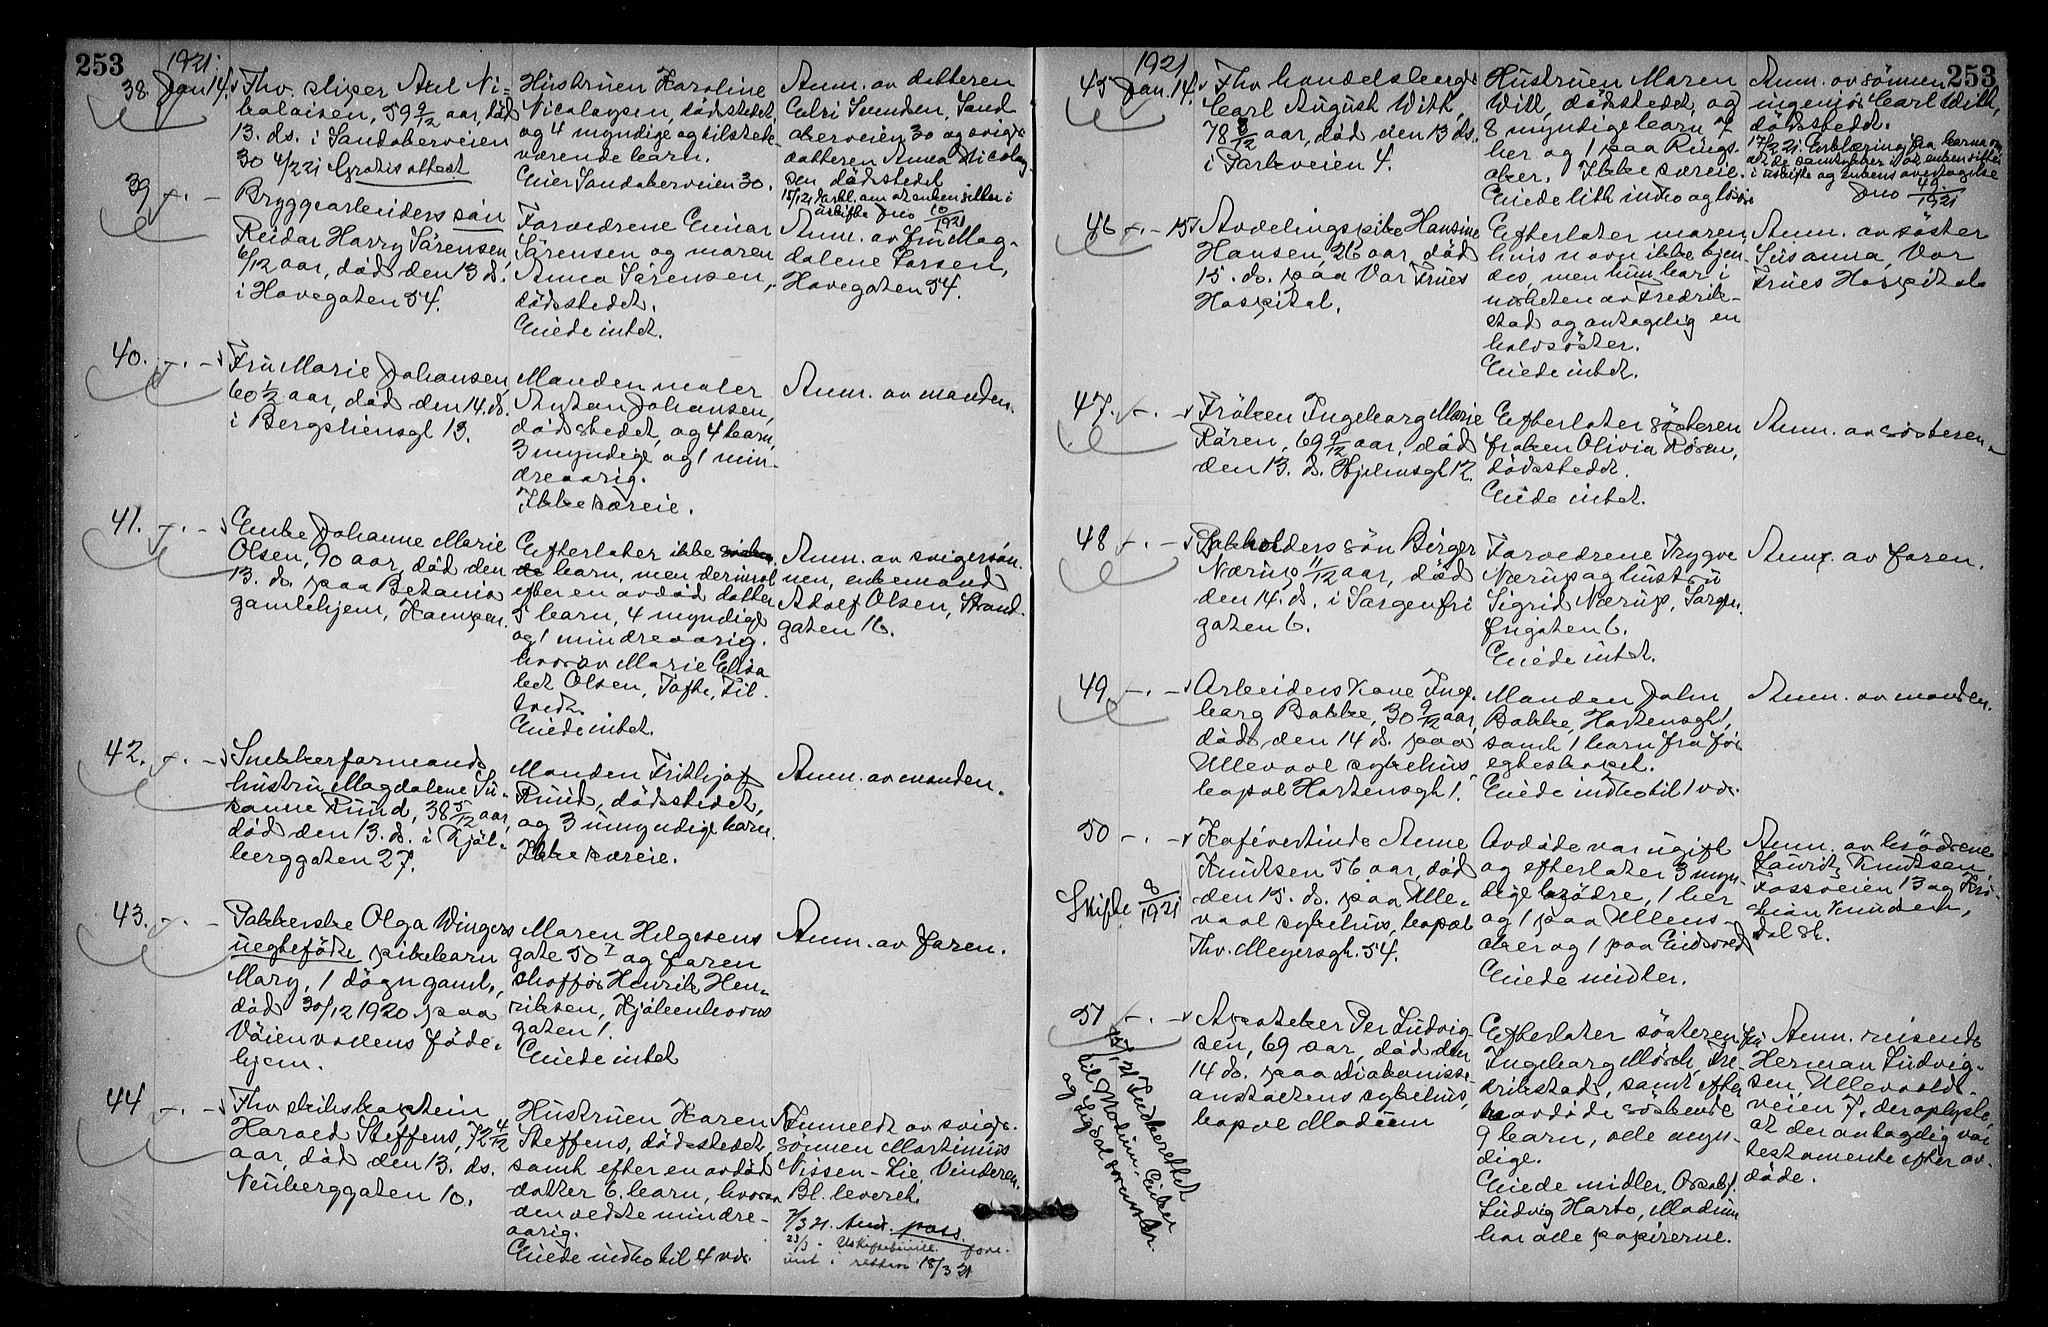 253
1921.
38. Jan 14.
Thv. sliper Axel Ni-
kolaisen, 59 9/12 aar, död
13. ds. i Sandakerveien
30 4/2 21 Gratis attest
Hustruen Karoline
Nicolaysen, dödsstedet,
og 4 myndige og tilstede-
værende barn.
Eier Sandakerveien 30.
Anm. av datteren
Sunden, Sand
akerveien 30 og sviger
datteren Anna Nicolay-
sen dödsstedet
at enken sitter i
uskifte Jno 10/1921
39 -.-
Bryggearbeiders sön
Reidar Harry Sörensen
6/12 aar, död den 13 ds.
i Havegaten 54.
Forældrene Einar
Sörensen og maren
Anna Sörensen,
dödsstedet.
Eiede intet.
Anm. av fru Mag-
dalene Larsen,
Havegaten 54.
40. -.-
Fru Marie Johansen
60 1/2 aar, död den 14. ds.
i Bergsliensgt 13.
Manden maler
Anton Johansen,
dödsstedet, og 4 barn,
3 myndige og 1 min-
dreaarig.
Ikke særeie.
Anm. av manden.
41. -.-
Enke Johanne Marie
Olsen, 90 aar, död den
13. ds. paa Betania
gamlehjem, Kampen.
Efterlater ikke
barn, men derimot
efter en avdöd datter
5 barn, 4 myndige
og 1 mindreaarig.
hvorav Marie Elisa
bet Olsen, Tofte, Fil-
tvedt.
Eiede intet.
Anm. av svigersön-
nen, enkemand
Adolf Olsen, Strand-
gaten 16.
42. -.-
Snekkerformands
hustru Magdalene Su-
sanne Ruud, 38 5/12 aar,
död den 13. ds. i Kjöl-
berggaten 27.
Manden Frithjof
Ruud, dödsstedet,
og 3 umyndige barn.
Ikke særeie.
Anm. av manden.
43. -.-
Pakkerske Olga Wingers
uegtefödte pikebarn
Mary, 1 dögn gamt,
död 30/12 1920 paa
Vöienvollens föde-
hjem.
Maren Helgesens
gate 50 I og faren
chofför Henrik Hen-
riksen, Kjöbenhavns
gaten 1.
Eiede intet
Anm. av faren.
44 -.-
Thv skibskaptein
Harald Steffens, 72 4/12
aar, död den 13. ds.
Neuberggaten 10.
Hustruen Karen
Steffens, dödsstedet,
samt efter en avdöd
datter 6 barn, hvorav
den ældste mindre-
aarig.
Eiede indbo til 4 vdr.
Anmeldt av sviger-
sönnen Martinius
Nissen-Lie, Vinderen.
Bl. leveret.
7/3 21. And. pass.
23/3 - Uskiftebevill. fore-
vist i retten 18/3 21
253
1921
45 Jan. 14.
Thv handelsborger
Carl August With,
78 8/12 aar, död den 13 ds.
i Parkveien 4.
Hustruen Maren
With, dödsstedet, og
8 myndige barn, 7
her og 1 paa Rings-
aker. Ikke særeie.
Eiede litt indbo og lösöre
Anm. av sönnen
ingeniör Carl With,
dödsstedet.
17/2 21. Erklæring fra barna om
at de samtykker i at enken sitter
i uskifte og enkens overtagelse
Jno 49/1921
46 -.- 15
Avdelingspike Hansine
Hansen, 26 aar, död
15. ds. paa Vor Frues
Hospital.
Efterlater maren,
hvis navn ikke kjen-
des, men hun bor i
nærheten av Fredrik-
stad og antagelig en
halvsöster.
Eiede intet.
Anm. av söster
Susanna, Vor
Frues Hospital.
47. -.-
Fröken Ingeborg Marie
Rören, 69 9/12 aar, död
den 13. ds. Hjelmsgt 12.
Efterlater sösteren
fröken Olivia Rören,
dödsstedet.
Eiede intet.
Anm. av sösteren.
48 -.-
Pakkholders sön Birger
Nærup 11/12 aar, död
den 14. ds. i Sorgenfri
gaten 6.
Forældrene Trygve
Nærup og hustru
Sigrid Nærup, Sorgen-
frigaten 6.
Eiede intet.
Anm. av faren.
49 -.-
Arbeiders kone Inge-
borg Bakke, 30 9/12 aar,
död den 14 ds. paa
Ullevaal sykehus,
bopæl Hortensgt 1.
Manden John
Bakke, Hortensgt 1,
samt 1 barn fra för
egteskapet.
Eiede indbo til 1 vdr.
Anm. av manden.
50 -.-
Skifte 8/1921
Kafévertinde Anne
Knutsen 56 aar, död
den 15. ds. paa Ulle-
vaal sykehus, bopæl
Thv. Meyersgt. 54.
Avdöde var ugift
og efterlater 3 myn-
dige brödre, 1 her
og 1 paa Ullens-
aker og 1 paa Eidsvold
Eiede midler.
Anm. av brödrene
Lauritz Knutsen,
Fossveien 13 og Kri-
stian Knudsen,
51 -.-
til Modum-Eiker
og Sigdal
Apoteker Per Ludvig-
sen, 69 aar, död den
14 ds. paa Diakonisse-
anstaltens sykehus,
bopæl Modum
Efterlater sösteren fru
Ingeborg Mörch, Fre-
drikstad, samt efter
avdöde söskende
9 barn, alle myn-
dige.
Eiede midler. O.r.sakf.
Ludvig Harbo, Modum
har alle papirerne.
Anm. reisende
Herman Ludvig-
sen, Ullevaals-
veien 7, der oplyste
at der antagelig var
testamente efter av-
döde.